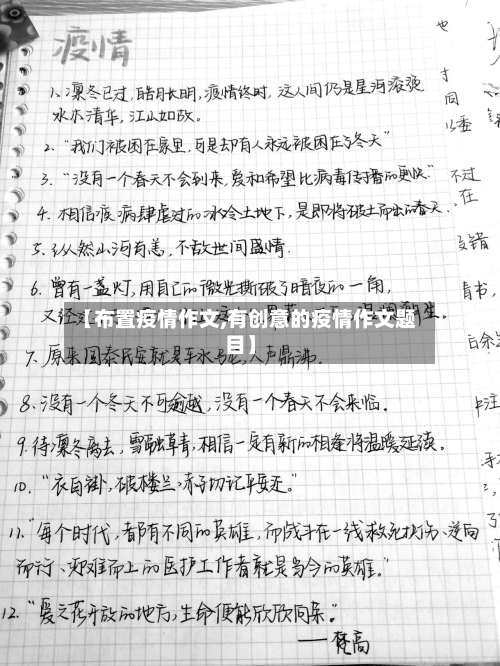 疫情
1. 凛冬已过,皓月长明,疫情终时,这人间仍是星河滚烫
水木清华,江山如故。
2. “我们被困在家里,可是却有人永远被困在了冬天”
3. “没有一个春天不会到来,爱和希望比病毒传播的更快.”
4. 相信疫病肆虐过的冰冷土地下,是即将破土而出的春天.
5. 纵然山河有恙,不敌世间盛情.
6. 曾有一盏灯,用自己的微光撕破了暗夜的一角,
又经
生.
【布置疫情作文,有创意的疫情作文题
目】
7. 原来国泰民安就是车水马龙,人声鼎沸.
8. 没有一个冬天不可逾越,没有一个春天不会来临.
9. 待凛冬离去,雪融草青,相信一定有新的相逢将温暖延续.
10. “衣白褂,破楼兰.赤子切记平安还.”
11. “每个时代,都有不同的英雄,而战斗在一线救死扶伤、逆向
而行、迎难而上的医护工作者就是当今的英雄.”
12. “爱之花开放的地方,生命便能欣欣向荣.”
——梵高
也
才
同
以委
不过
在
支错
青书,
白余